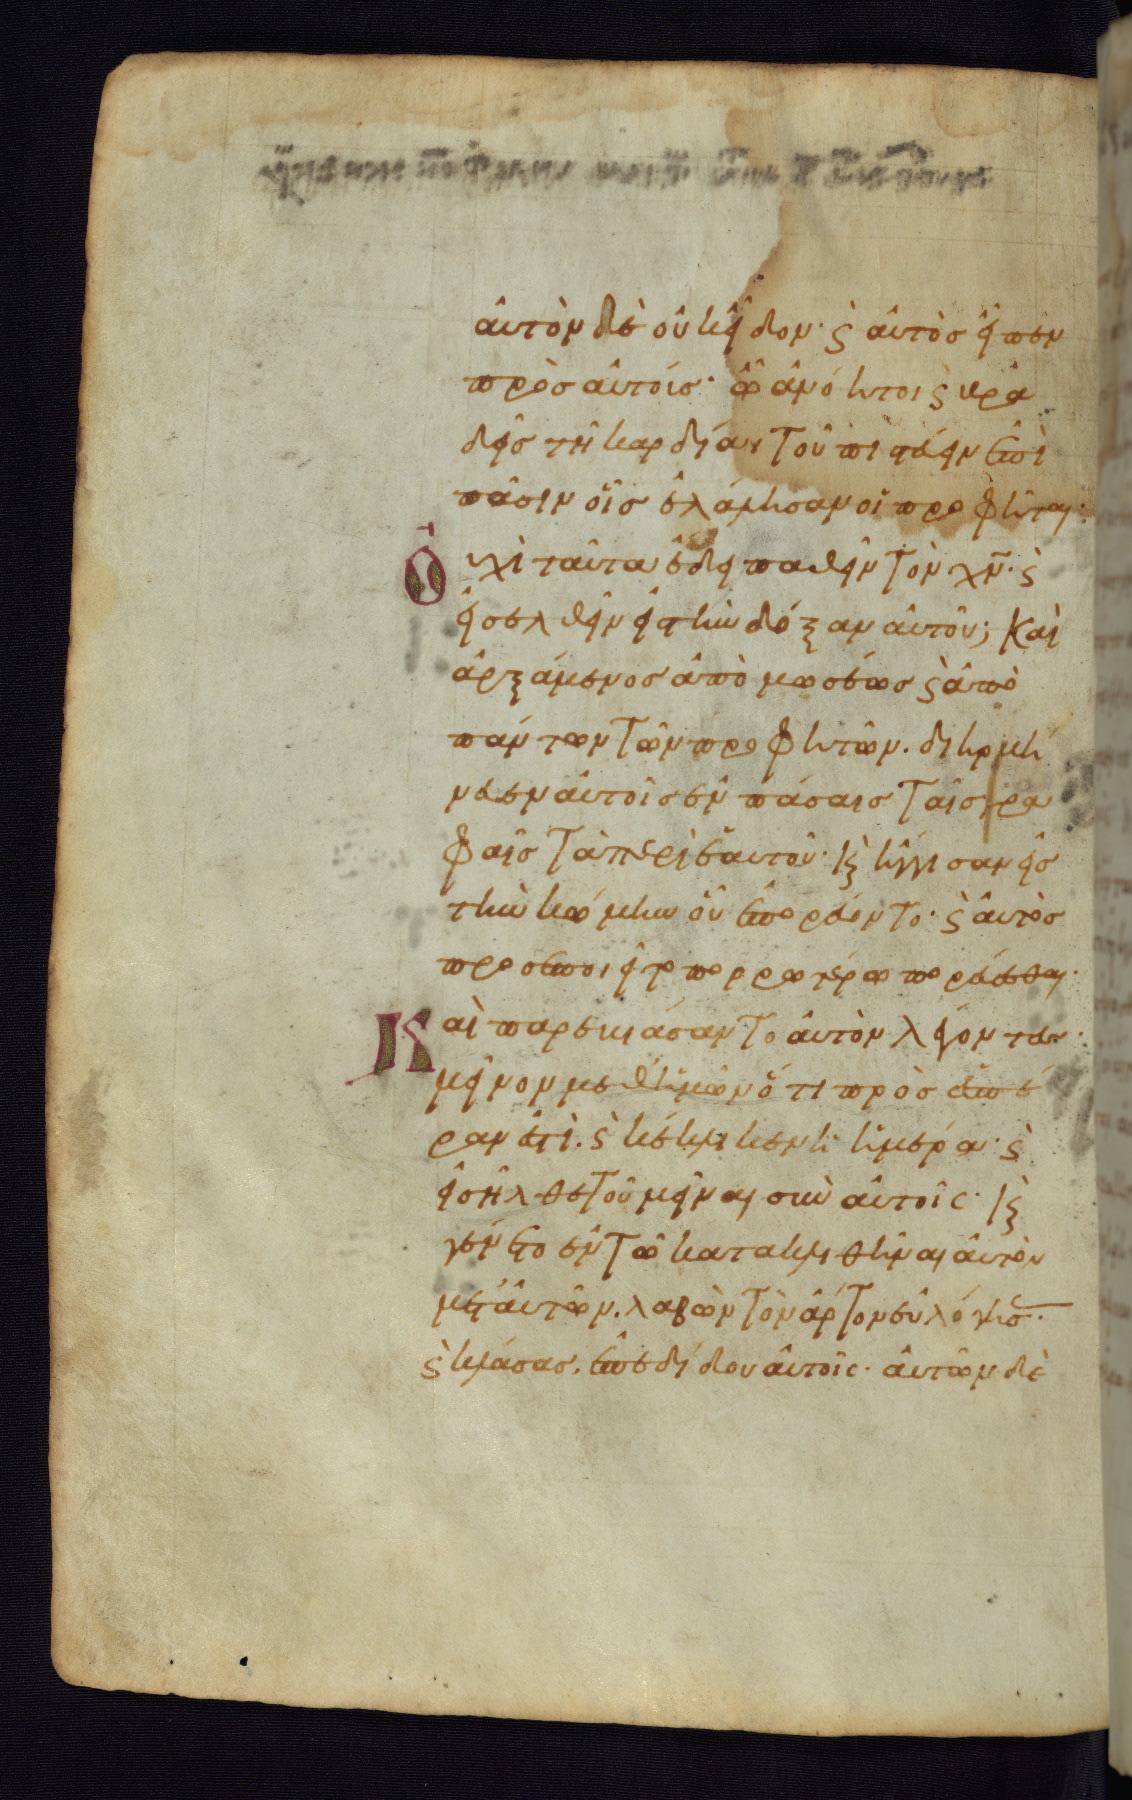 αὐτὸν δὲ οὐκ εἶδον· ϛ αὐτὸσ εἶπεν
πρὸσ αὐτοίσ· ὦ ἀνόητοι ϛ βρα
δεῖσ τῆ καρδία, τοῦ πιστέυειν ἐπὶ
πᾶσιν οἷσ ἐλάλησαν οἱ προφῆται·
Ὀυχὶ ταῦτα ἔδει παθεῖν τὸν χν̅· ϛ
εἰσελθεῖν εἰσ τὴν δόξαν αὐτοῦ; Καὶ
ἀρξάμενοσ ἀπὸ μωσέωσ ϛ ἀπὸ
πάντων τῶν προφητῶν. διηρμή
νευεν αὐτοῖσ ἐν πάσαισ ταῖσ γρα
φαῖσ τὰ περὶ ἑαυτοῦ· κ ἤγγισαν εἰσ
τὴν κώμην οὗ ἐπορεύοντο· ϛ αὐτὸσ
προσεποιεῖτο πορρωτέρω πορεύεσθαι·
Καὶ παρεβιάσαντο αὐτὸν λέγοντεσ·
μεῖνον μεθ ἡμῶν ὅτι πρὸσ ἑσπέ
ραν ἐστὶ. ϛ κέκλικεν ἡ ἡμέρα· ϛ
εἰσῆλθε τοῦ μεῖναι σὺν αὐτοῖς· κ ἐ
γένετο ἐν τῶ κατακλιθῆναι αὐτὸν
μετ ἀυτῶν. λαβὼν τὸν ἄρτον εὐλόγησ·
ϛ κλάσασ, ἐπεδίδου αὐτοῖς· ἀυτῶν δὲ